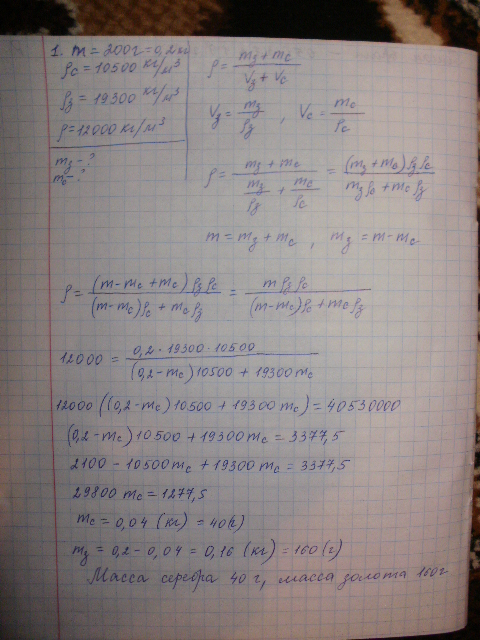 1. m = 200г = 0,2 кг
ρc = 10500 кг/м³
ρз = 19300 кг/м³
ρ = 12000 кг/м³
mз - ?
mc - ?
ρ = (mз + mc) / (Vз + Vc)
Vз = mз/ρз , Vc = mc/ρc
ρ = (mз + mc) / (mз/ρз + mc/ρc) = (mз + mc) ρз ρc / (mз ρc + mc ρз)
m = mз + mc , mз = m - mc
ρ = (m - mc + mc) ρз ρc / ((m - mc) ρc + mc ρз) = m ρз ρc / ((m - mc) ρc + mc ρз)
12000 = 0,2 · 19300 · 10500 / ((0,2 - mc) 10500 + 19300 mc)
12000 ((0,2 - mc) 10500 + 19300 mc) = 40530000
(0,2 - mc) 10500 + 19300 mc = 3377,5
2100 - 10500 mc + 19300 mc = 3377,5
29800 mc = 1277,5
mc = 0,04 (кг) = 40 (г)
mз = 0,2 - 0,04 = 0,16 (кг) = 160 (г)
Масса серебра 40 г, масса золота 160г